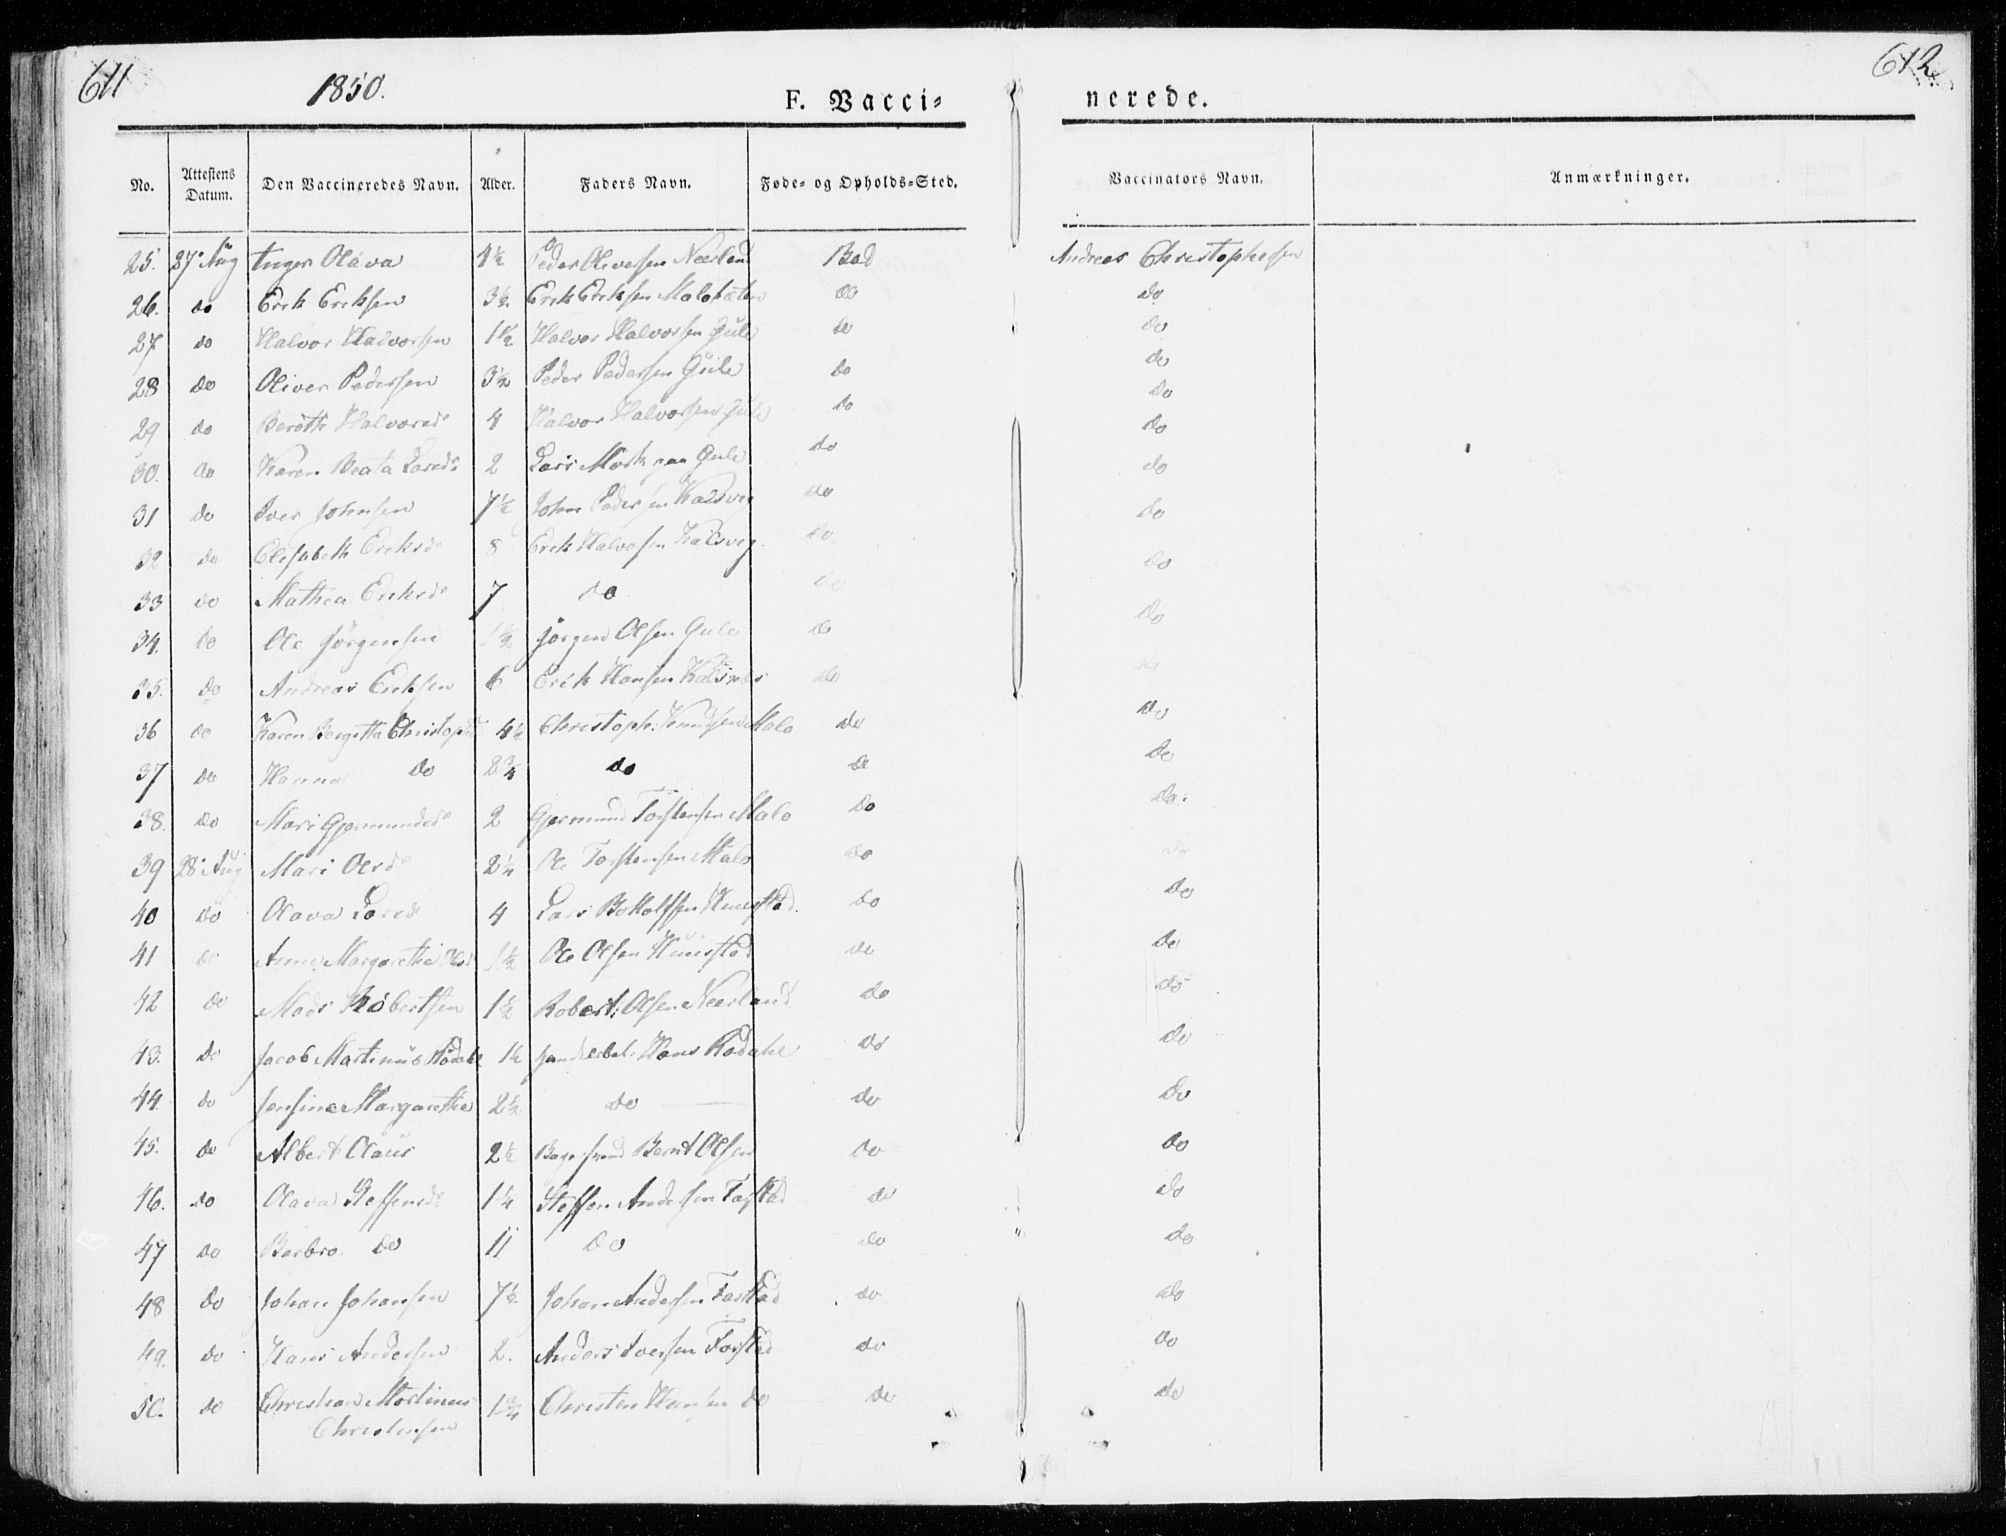 611
1850.
F. Vacci=
nerede.
612
No. Attestens Datum. Den Vaccineredes Navn. Alder. Faders Navn. Føde- og Opholds-Sted. Vaccinators Navn. Anmærkninger.
25. 27 Aug Inger Olava 4½ Peder Olivesen Neerland Bod Andreas Christophersen
26. do Erik Eriksen 3½ Erik Eriksen do do
27 do Halvor Halvorsen 1½ Halvor Halvorsen Gule do do
28 do Oliver Pedersen 3½ Peder Pedersen Gule do do
29 do Halvorsd 4 Halvor Halvorsen Gule do do
30. do Karen Beata Larsd 2 Lars Mork paa Gule do do
31 do Iver Johnsen 7½ John Pedersen Kalsvig do do
32 do Elisabeth Eriksd 8 Erik Halvorsen Kalsvig do do
33 do Mathea Eriksd 7 do do do
34. do Ole Jörgensen 1½ Jörgen Olsen Gule do do
35. do Andreas Eriksen 6 Erik Hansen Kalsnes do do
36 do Karen Bergitta Christophd 4½ Christoph. Knudsen Malo do do
37 do Hanna do 2¾ do do do
38. do Mari Gjermundsd 2 Gjermund Torstensen Malo do do.
39 28 Aug Mari Olsd 2¼ Ole Torstensen Malo do do
40 do Olava Larsd 4 Lars Botolfsen Hunstad. do do
41 do Anne Margrethe Olsd 1½ Ole Olsen Hunstad do do
42 do Mads Robertsen 1½ Robert Olsen Neerland do do
43. do Jacob Martinus Rodahl 1½ Hans Rodahl do do
44 do Jensine Margarethe 2½ do do do
45. do Albert Olaus 2½ Bernt Olsen do do
46. do Olava Steffensd 1¼ Steffen Andersen Farstad do do
47 do Berbro do 11 do do do
48 do Johan Johansen 7½ Johan Andersen Farstad do do
49. do Hans Andersen 2. Anders Iversen Farstad do do
50. do Christian Martinus 1¾ Christen Hansen do do do
Christensen